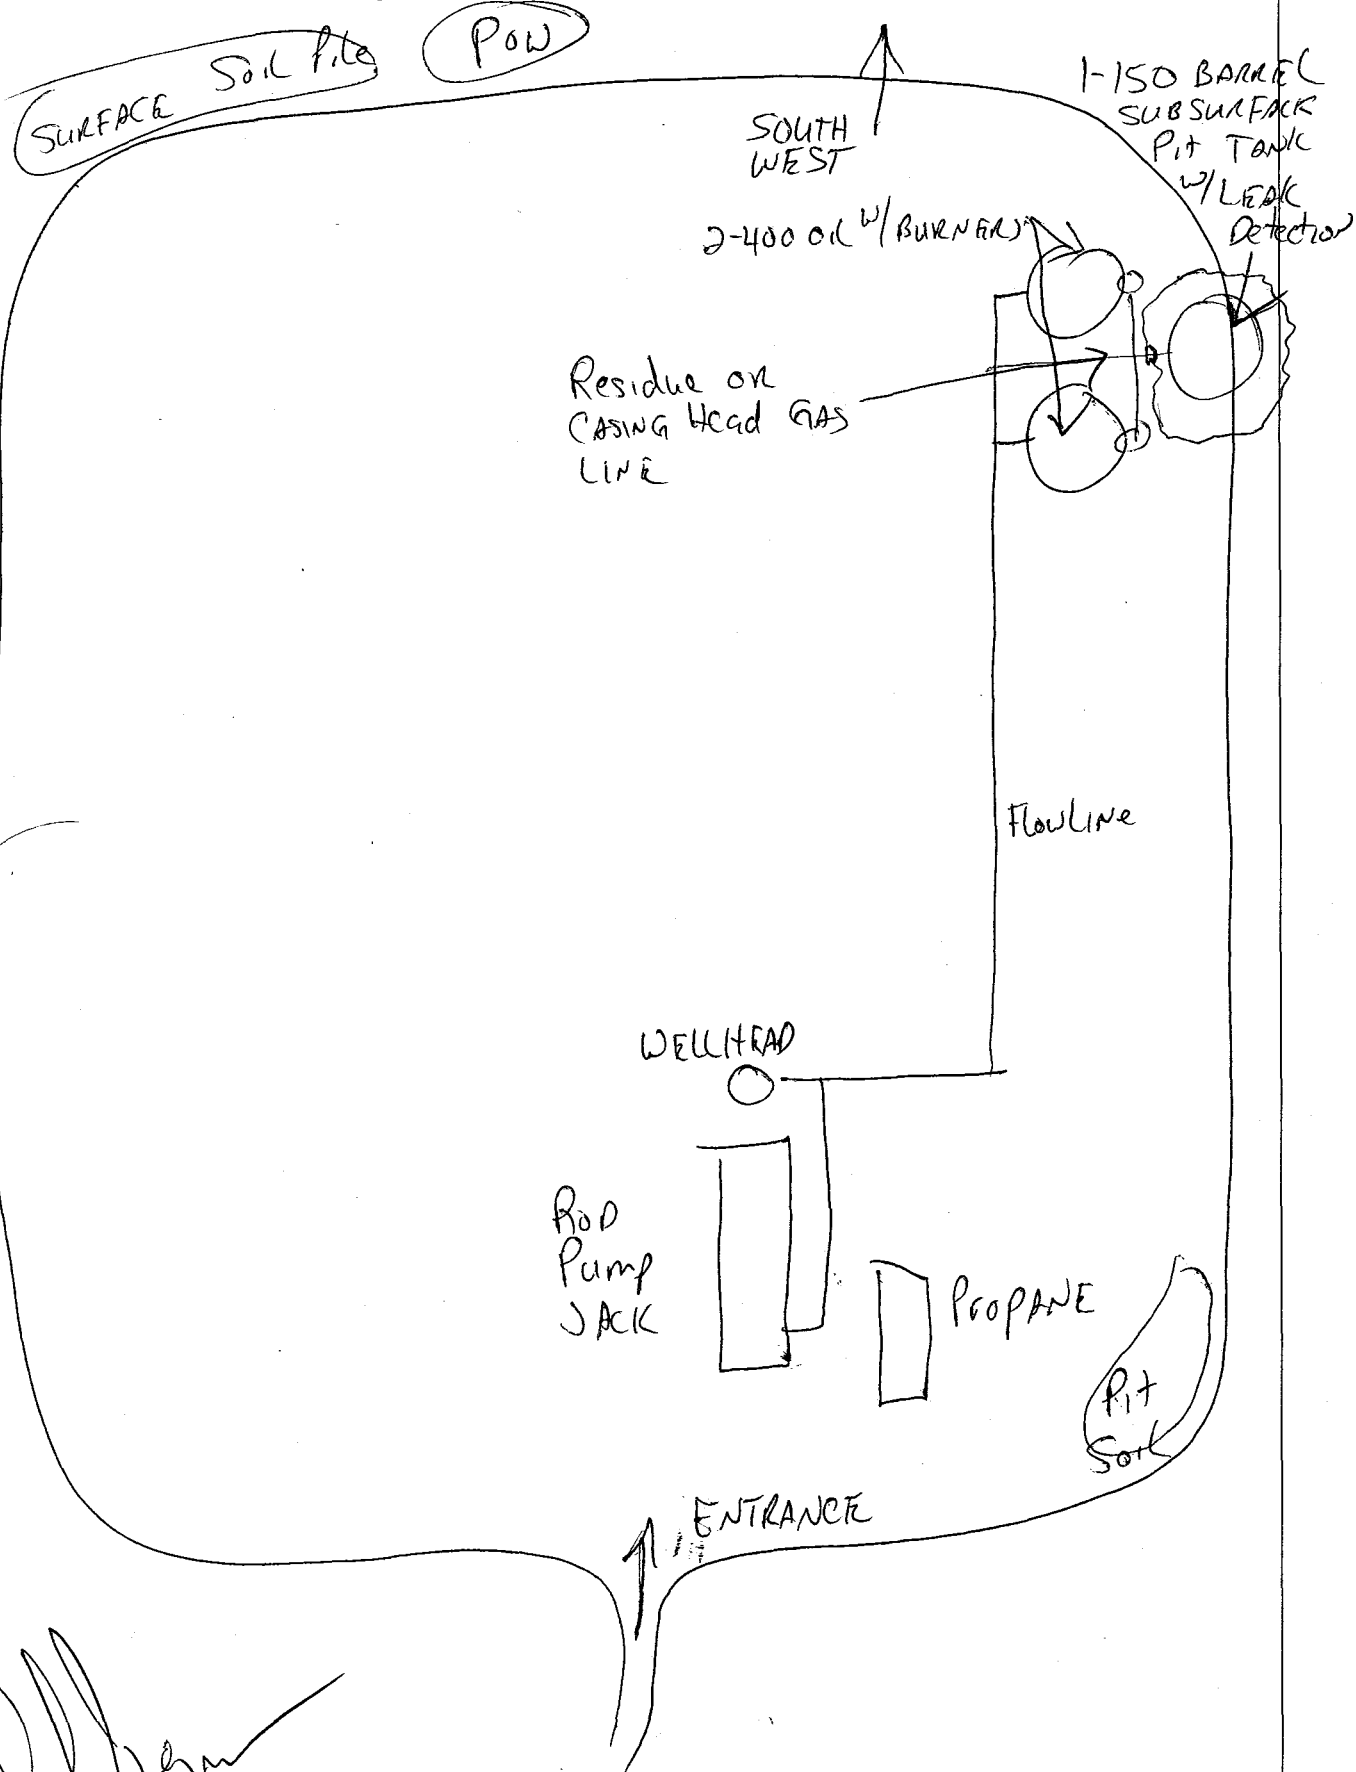 SURFACE Soil Pile
POW
1-150 BARREL
SUBSURFACE
Pit TANK
W/LEAK
Detection
SOUTH
WEST
2-400 OIL W/BURNERS
Residue or
CASING Head GAS
LINE
FlowLINe
WELLHEAD
ROD
Pump
JACK
PROPANE
Pit
Soil
ENTRANCE